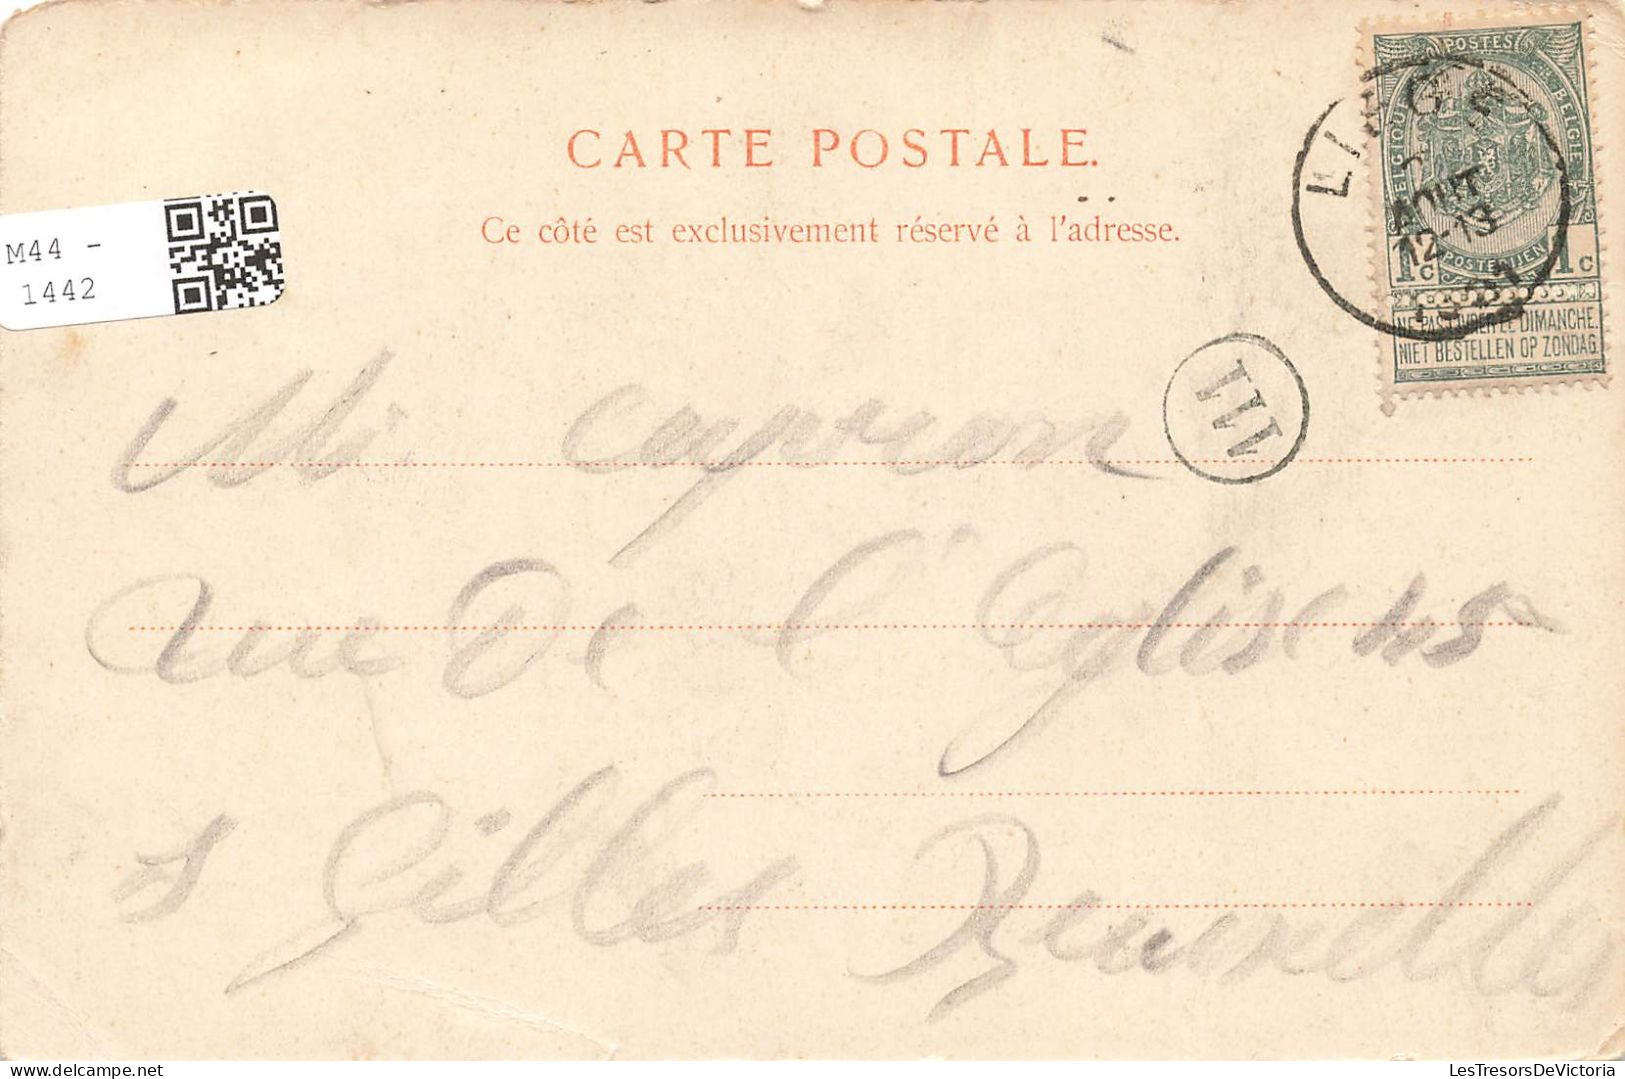 CARTE POSTALE.
Ce côté est exclusivement réservé à l'adresse.
M44 -
1442
POSTES
BELGIQUE BELGIE
LIEGE
AOUT
12-13
POSTERIJEN
1c 1c
NE PAS LIVRER LE DIMANCHE.
NIET BESTELLEN OP ZONDAG
111
capron
rue De l'eglise 45
s Gilles Bruxelles
LesTresorsDeVictoria
www.delcampe.net